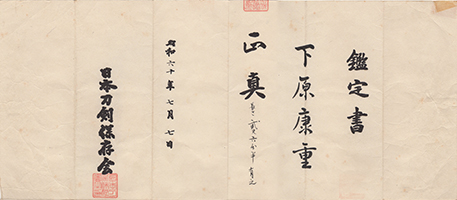 鑑定書
下原康重
正真
昭和六十年 七月 七日
日本刀剣保存会